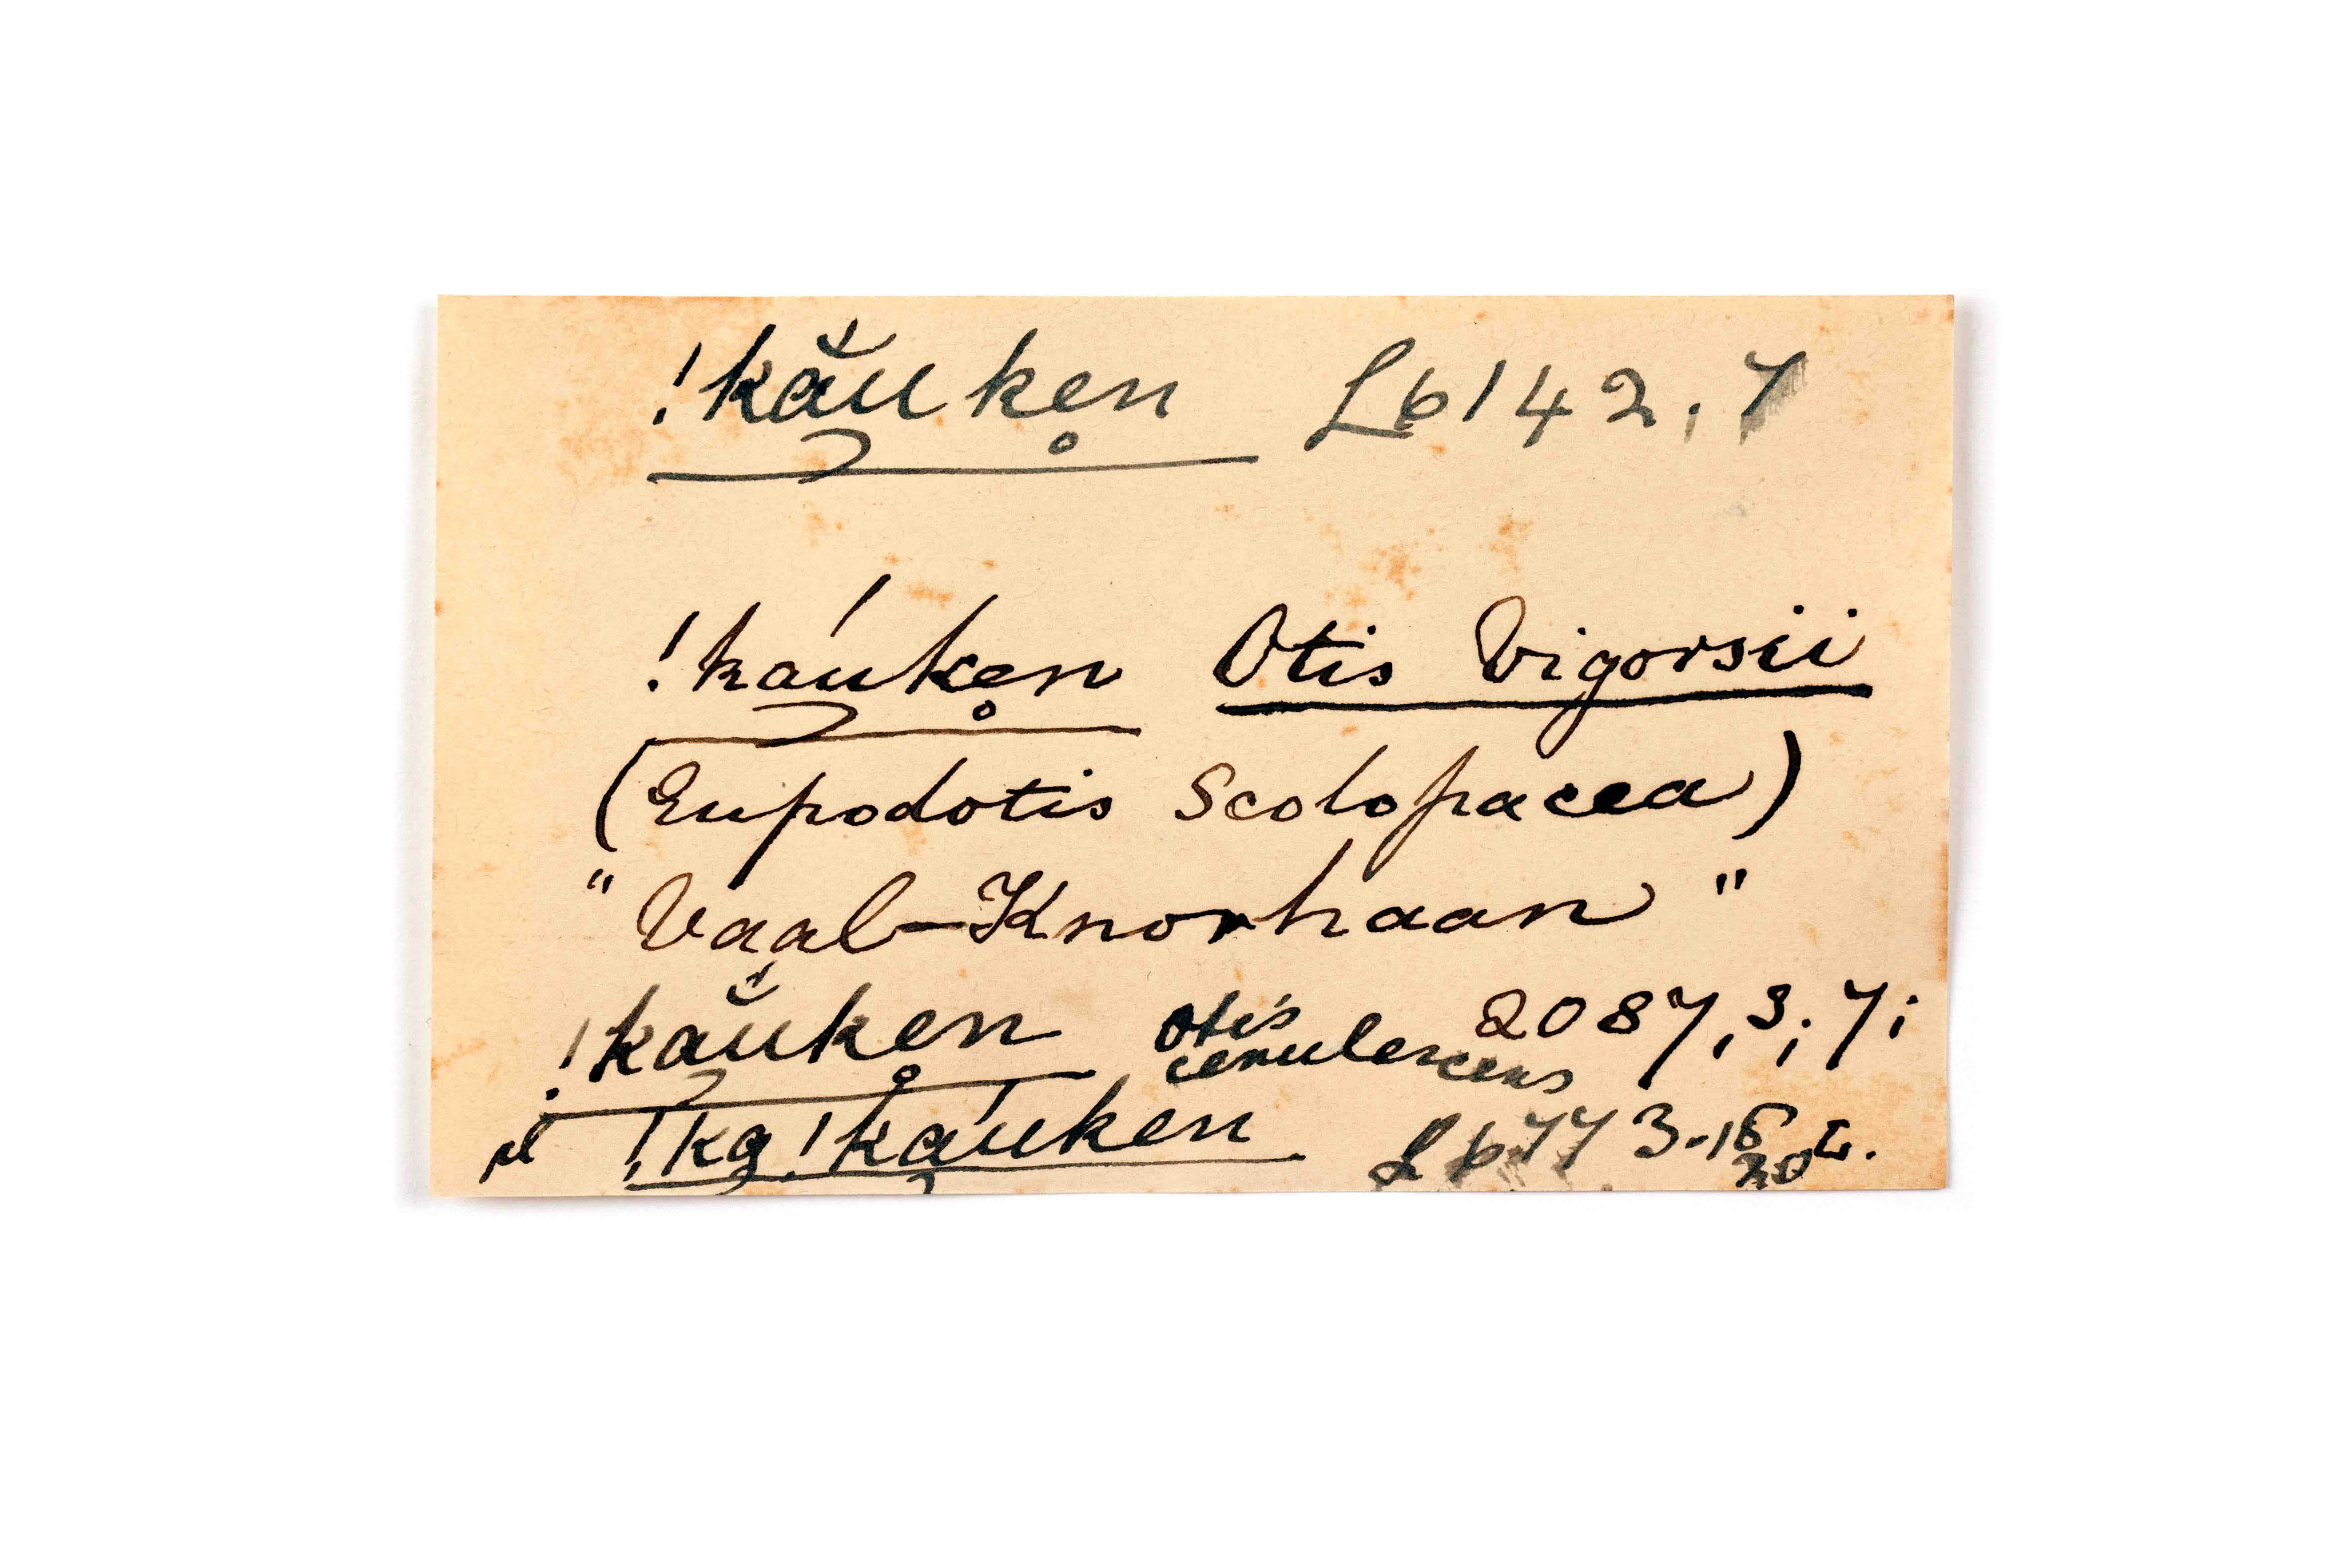 !kău̯ken̥ L 6142, 7
!kaúken̥ Otis Vigorsii
(Eupodotis Scolopacea)
"Vaal-Knorhaan"
!kăuken̥ Otis cerulescens 2087, 3; 7;
pl !ka!kaúken L 6773-18
20